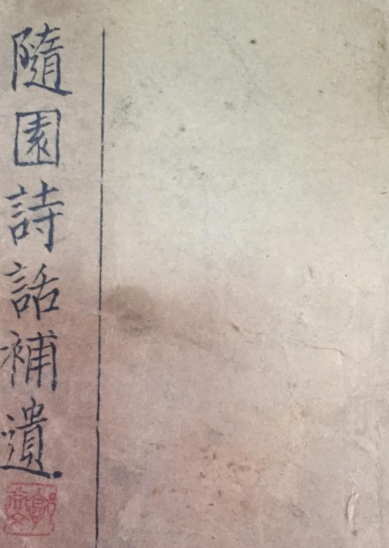 隨園詩話補遺